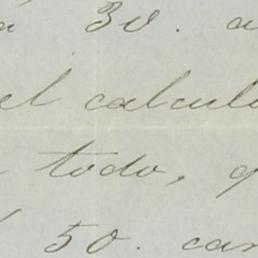 30. a
el calculo
todo, q
50. can